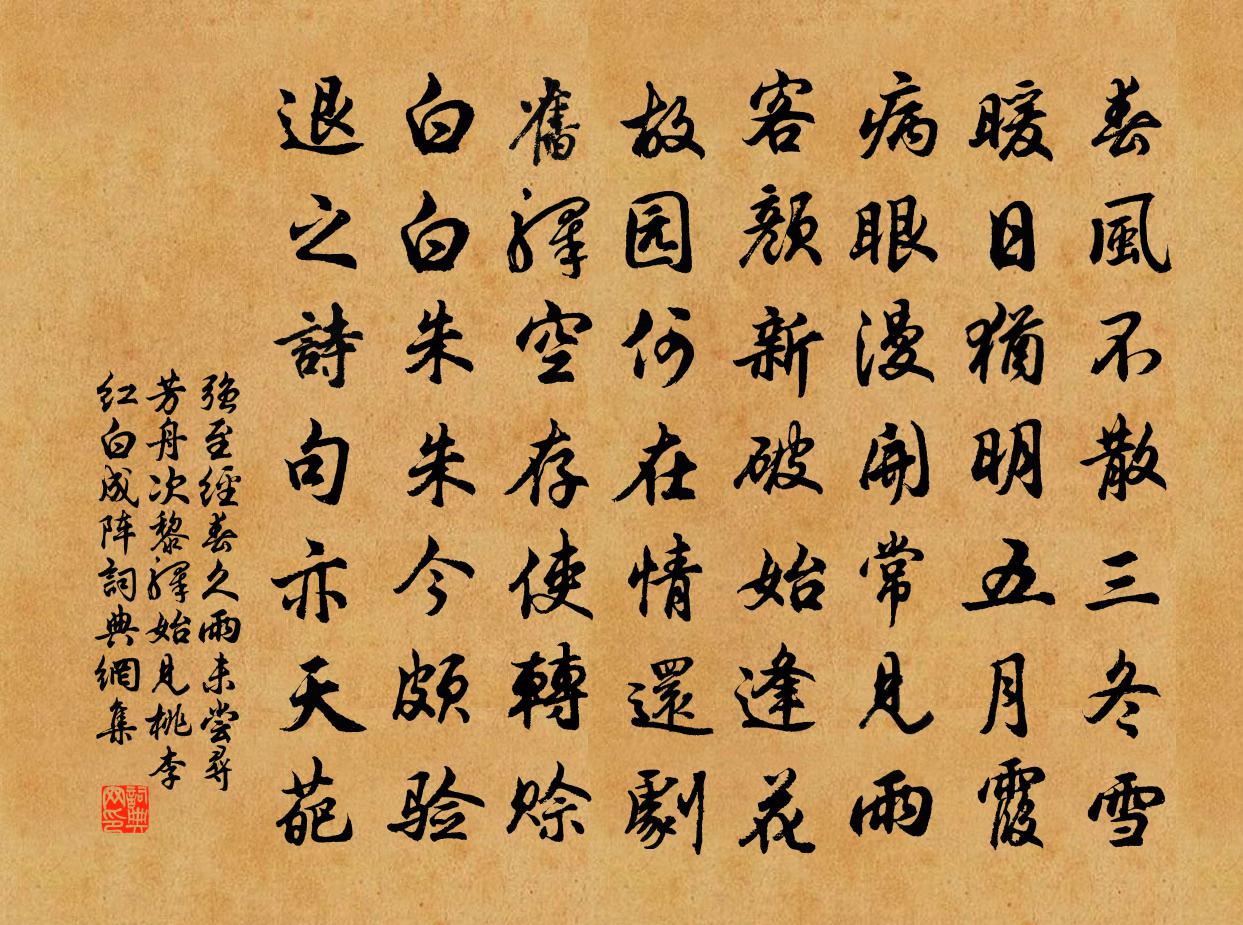 春風不散三冬雪
暖日猶明五月霞
病眼漫開常見雨
客顏新破始逢花
故园何在情還劇
舊驛空存使轉賒
白白朱朱今頗验
退之詩句亦天葩
强至經春久雨未嘗尋
芳舟次黎驛始見桃李
红白成阵詞典網集
詞典网印